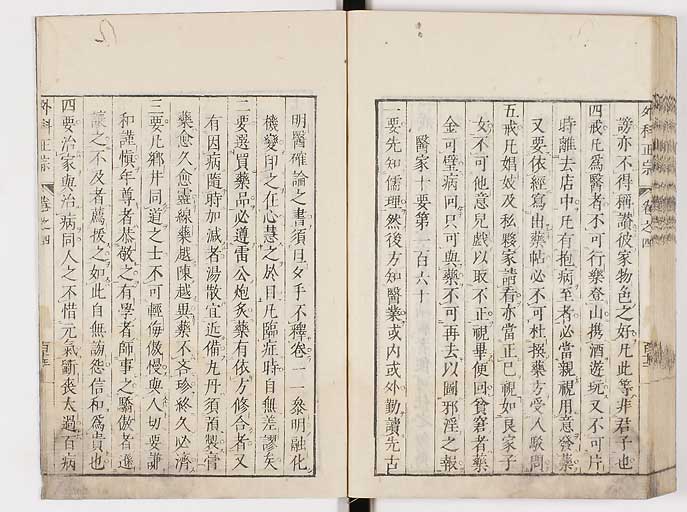 外科正宗 卷之四
謗亦不得稱讃彼家物色之好凡此等非君子也
四戒凡爲醫者不可行樂登山携酒遊玩又不可片
時離去店中凡有抱病至者必當親視用意發藥
又要依經寫出藥帖必不可杜撰藥方受人駁問
五戒凡娼妓及私夥家請看亦當正己視如良家子
女不可他意兒戲以取不正視畢便回貧窘者藥
金可璧病回只可與藥不可再去以圖邪淫之報
醫家十要第一百六十
一要先知儒理然後方知醫業或内或外勤讀先古
明醫確論之書須旦夕手不釋卷一一叅明融化
機變印之在心慧之於目凡臨症時自無差謬矣
二要選買藥品必遵雷公炮炙藥有依方修合者又
有因病隨時加減者湯散宜近備丸丹須預製膏
藥愈久愈靈線藥越陳越異藥不吝珍終久必濟
三要凡鄉井同道之士不可輕侮傲慢與人切要謙
和謹愼年尊者恭敬之有學者師事之驕傲者遜
讓之不及者薦拔之如此自無謗怨信和爲貴也
四要治家與治病同人之不惜元氣斲喪太過百病
外科正宗 卷之四